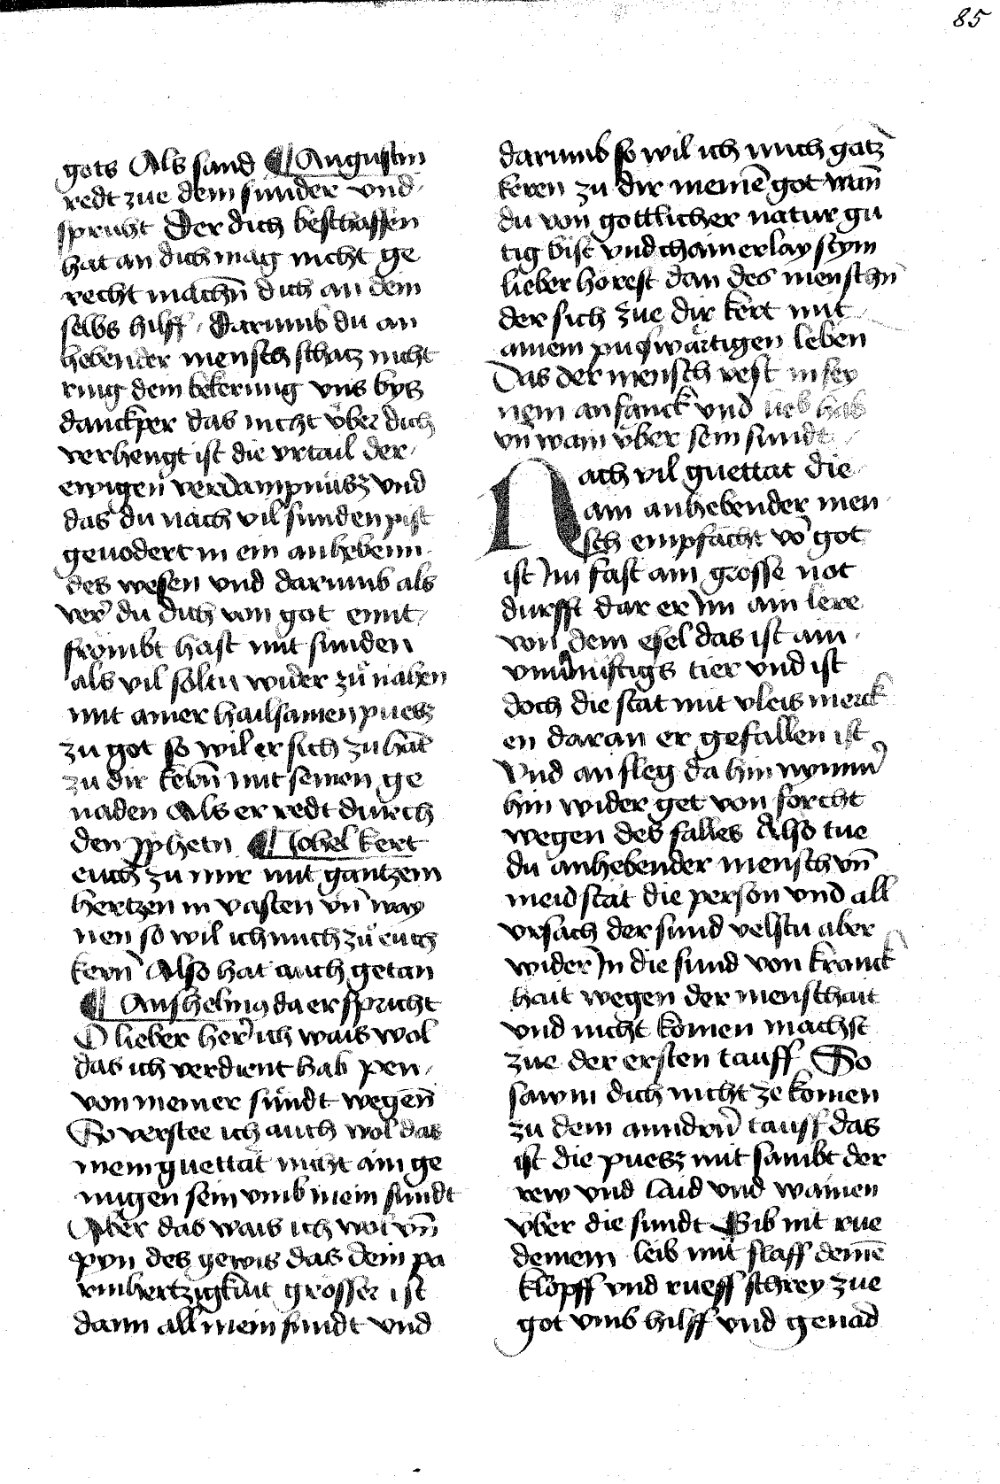 85
gots Als sand ¶ Augustin
redt zue dem sunder vnd
spricht Der dich beschaffen
hat an dich mag nicht ge
recht machn̄ dich an dein
selbs hilff Darumb du an
hebender mensch schatz nicht
ring dem bekerung vns bys
danckper das nicht vber dich
verhengt ist die vrtail der
ewigen verdampnüsz vnd
das du nach vil sunden pist
geuodert in ein anhebenn
des wesen vnd darumb als
ver du dich von got emt
frömbt hast mit sunden
als vil soltu wider zů nahen
mit amer hailsamen puesz
zu got so wil er sich zu hāt
zu dir kern̄ mit seinen ge
naden Als er redt durch
den pphetn ¶ Johel kert
euch zu mir mit gantzem
hertzen in vasten vn̄ way
nen so wil ich mich zů euch
kern̄ Also hat auch getan
¶ Anshelmus da er spricht
O lieber her ich wais wol
das ich verdient hab pen
von meiner sündt wegen̄
So verstee ich auch wol das
mein guettät nicht ain ge
nugen sein vmb mein sundt
Aber das wais ich wol vn̄
pyn des gewis das dein pa
rmhertzigkait grosser ist
dann all mein sundt vnd
darumb so wil ich mich gātz
keren zu dir meinē got wan̄
du von gottlicher natur gü
tig bist vnd chainerlay stym
lieber horest dan des menschn̄
der sich zue dir kert mit
ainem puqwärtigen leben
Das der mensch vest in sey
nem anfanck vnd lieb hab
vn wain vber sein sundt
Nach vil guettat die
ain anhebender men
sch empfächt vō got
ist Im fast ain grosse not
durfft dar er Im ain lere
von dem esel das ist ain
vnuernüftigs tier vnd ist
doch die stat mit vleis merck
en daran er gefallen ist
Vnd an fleg da hin nymmer
hin wider get von forcht
wegen des falles Also tue
du anhebender mensch vn̄
meid stät die person vnd all
vrsach der sund velstu aber
wider In die sund von kranck
hait wegen der menschait
vnd nicht komen machst
zue der ersten tauff So
sawm dich nicht ze komen
zu dem anndern̄ tauff das
ist die puesz mit sambt der
rew vnd laid vnd wainen
vber die sundt Gib nit rue
deinem leib mit slaff deinē
klopff vnd rueff schrey zue
got vmb hilff vnd genad